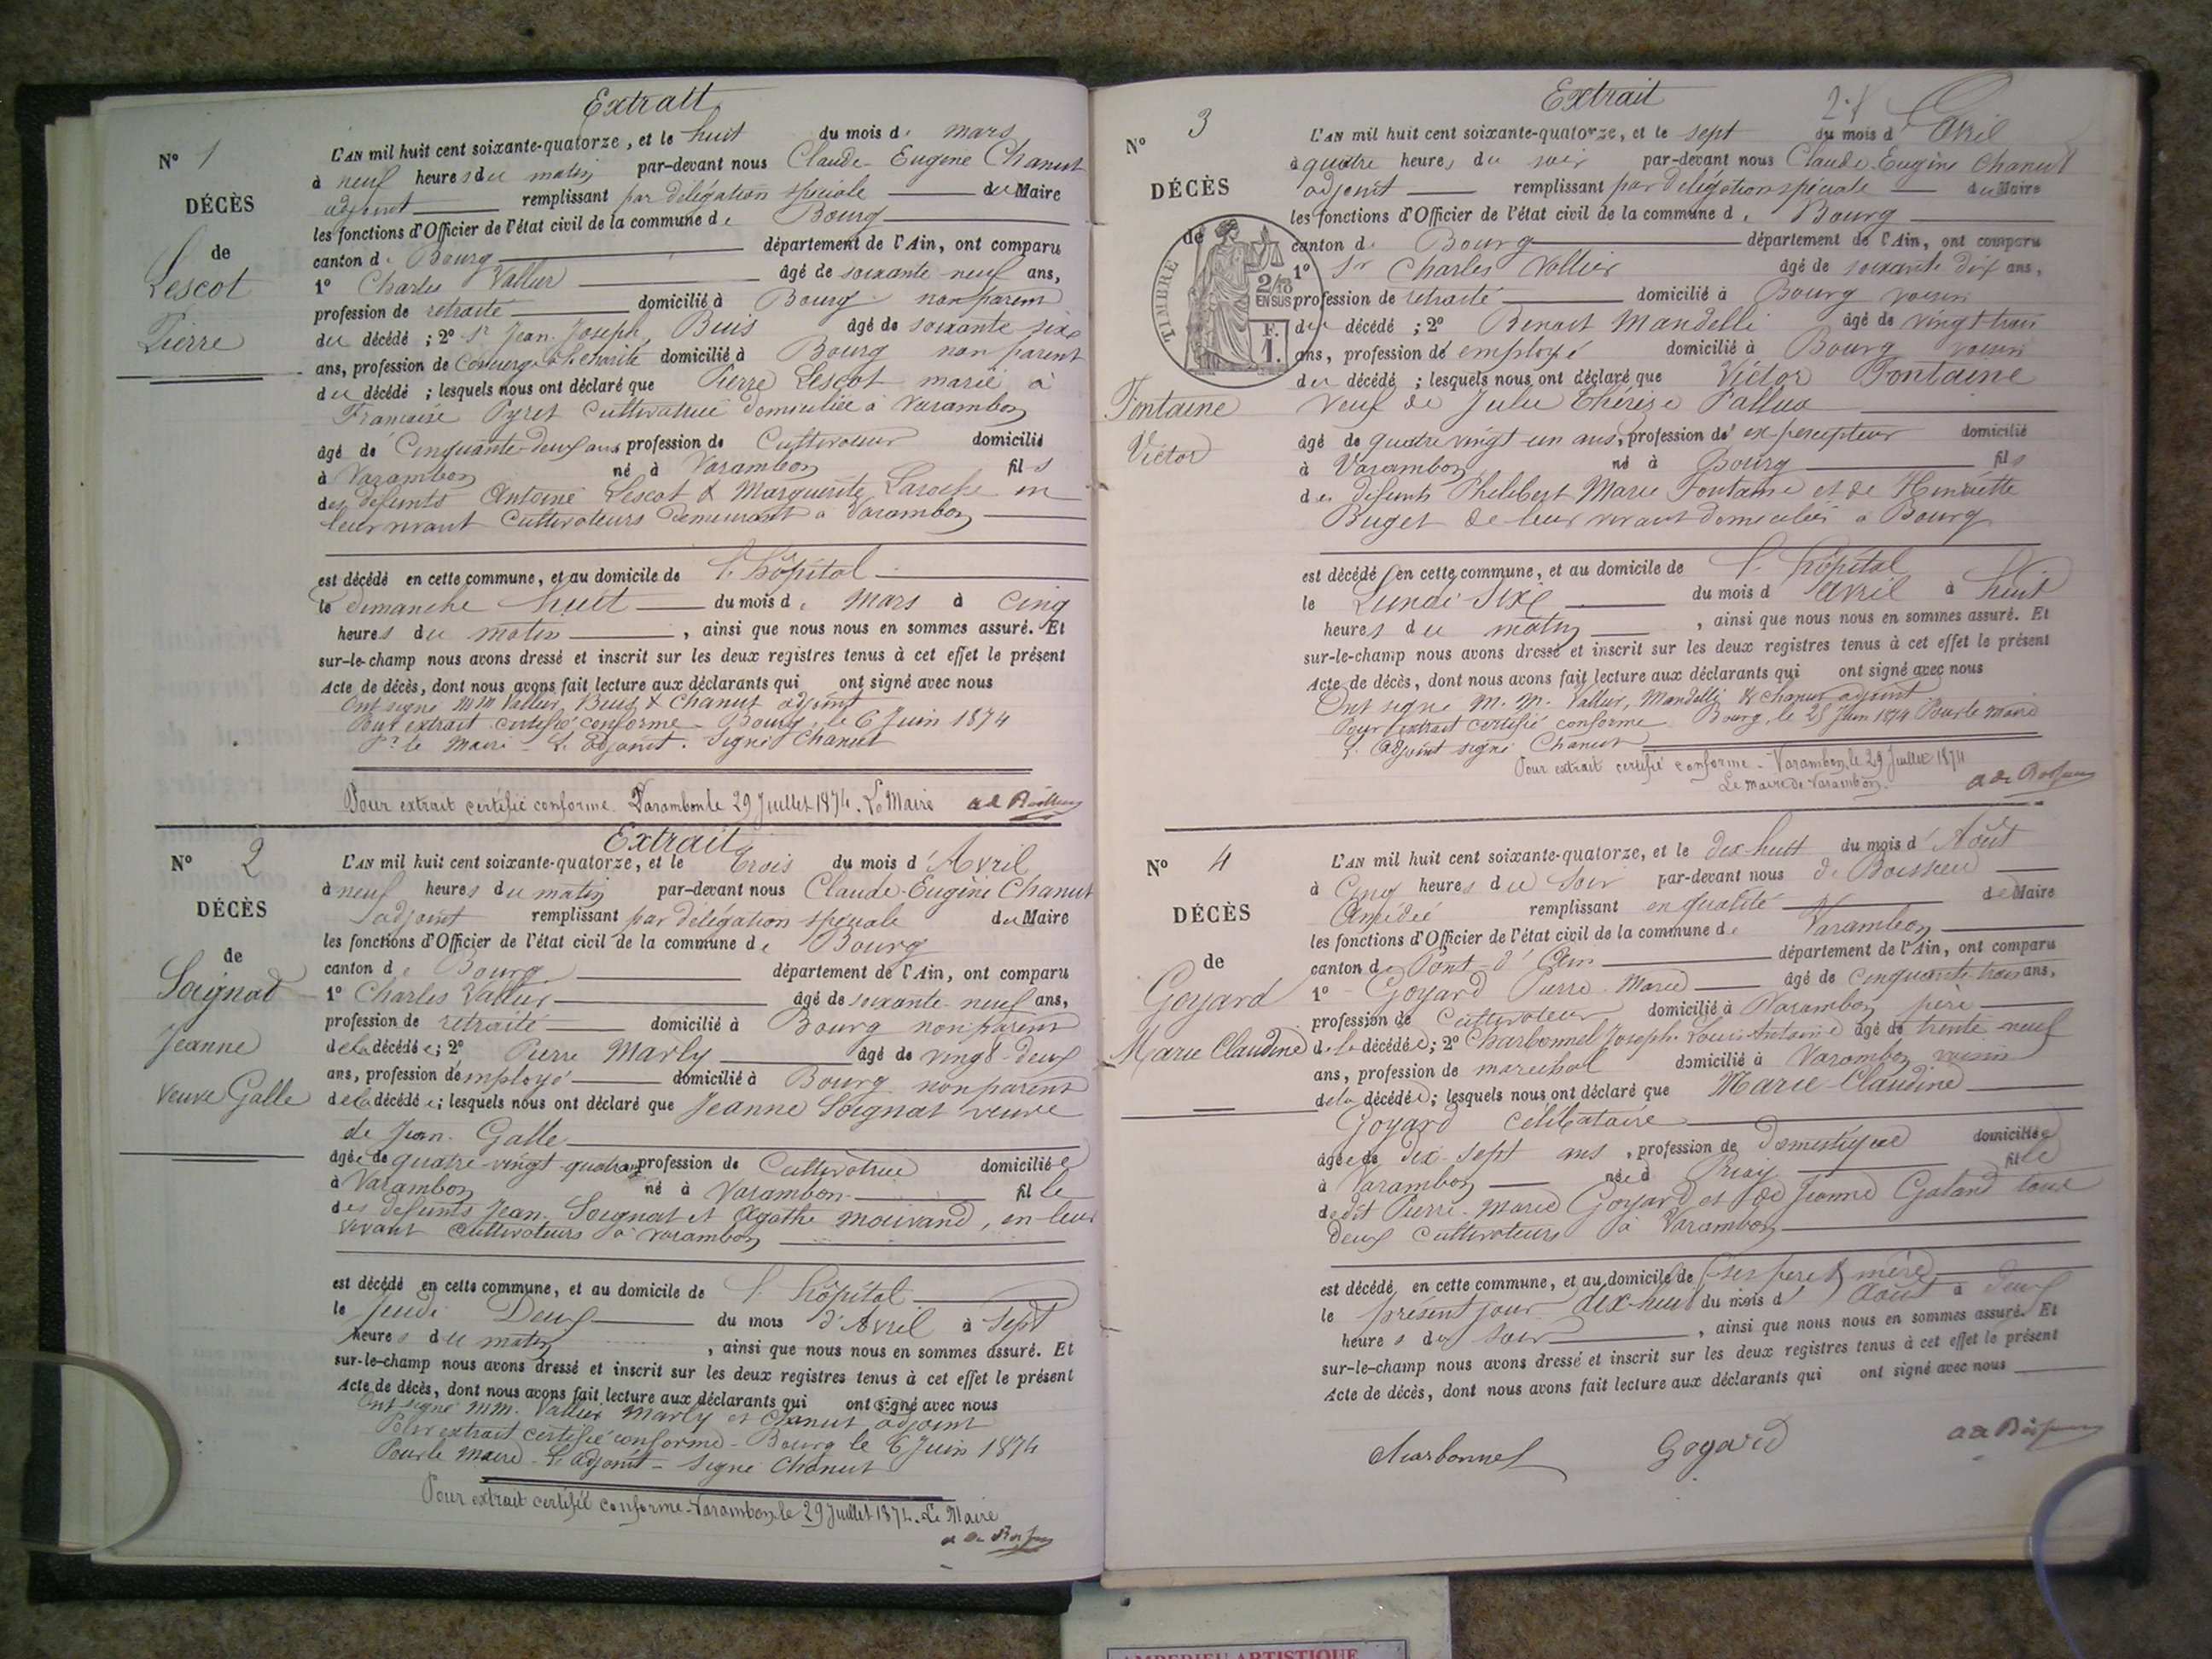 Extrait
N° 1
DÉCÈS
de
Lescot
Pierre
L'AN mil huit cent soixante-quatorze, et le huit du mois de mars
à neuf heures du matin par-devant nous Claude-Eugène Chanut
adjoint remplissant par délégation spéciale du Maire
les fonctions d'Officier de l'état civil de la commune de Bourg
canton de Bourg département de l'Ain, ont comparu
1° Charles Vallier âgé de soixante neuf ans,
profession de retraité domicilié à Bourg non parent
du décédé ; 2° Sr Jean Joseph Buis âgé de soixante six
ans, profession de Concierge charité domicilié à Bourg non parent
du décédé ; lesquels nous ont déclaré que Pierre Lescot marié à
Françoise Pyret Cultivatrice domiciliée à Varambon
âgé de Cinquante-deux ans profession de Cultivateur domicilié
à Varambon né à Varambon fils
des défunts Antoine Lescot & Marguerite Laroche en
leur vivant Cultivateurs demeurant à Varambon
est décédé en cette commune, et au domicile de l'hôpital
le dimanche huit du mois de Mars à Cinq
heures du matin , ainsi que nous nous en sommes assuré. Et
sur-le-champ nous avons dressé et inscrit sur les deux registres tenus à cet effet le présent
Acte de décès, dont nous avons fait lecture aux déclarants qui ont signé avec nous
Ont signé MM Vallier, Buis & Chanut adjoint
Pour extrait certifié conforme - Bourg, le 6 Juin 1874
Pr le Maire - L'adjoint. Signé Chanut
Pour extrait certifié conforme. Varambon le 29 Juillet 1874. Le Maire
Extrait
N° 2
DÉCÈS
de
Soignat
Jeanne
veuve Galle
L'AN mil huit cent soixante-quatorze, et le trois du mois d'Avril
à neuf heures du matin par-devant nous Claude-Eugène Chanut
adjoint remplissant par délégation spéciale du Maire
les fonctions d'Officier de l'état civil de la commune de Bourg
canton de Bourg département de l'Ain, ont comparu
1° Charles Vallier âgé de soixante-neuf ans,
profession de retraité domicilié à Bourg non parent
de la décédée ; 2° Pierre Marly âgé de vingt-deux
ans, profession d'employé domicilié à Bourg non parent
de la décédée ; lesquels nous ont déclaré que Jeanne Soignat veuve
de Jean Galle
âgée de quatre-vingt-quatre ans profession de Cultivatrice domiciliée
à Varambon né à Varambon fille
des défunts Jean Soignat et Agathe Mouvand, en leur
vivant cultivateurs à Varambon
est décédé en cette commune, et au domicile de l'hôpital
le Jeudi Deux du mois d'Avril à Sept
heures du matin , ainsi que nous nous en sommes assuré. Et
sur-le-champ nous avons dressé et inscrit sur les deux registres tenus à cet effet le présent
Acte de décès, dont nous avons fait lecture aux déclarants qui ont signé avec nous
Ont signé MM. Vallier Marly et Chanut adjoint
Pour extrait certifié conforme - Bourg le 6 Juin 1874
Pour le Maire - L'adjoint - Signé Chanut
Pour extrait certifié conforme - Varambon, le 29 Juillet 1874. Le Maire
Extrait
N° 3
DÉCÈS
de
TIMBRE
2/10
EN SUS
F.
1.
Fontaine
Victor
L'AN mil huit cent soixante-quatorze, et le sept du mois d'Avril
à quatre heures du soir par-devant nous Claude-Eugène Chanut
adjoint remplissant par délégation spéciale du Maire
les fonctions d'Officier de l'état civil de la commune de Bourg
canton de Bourg département de l'Ain, ont comparu
1° Sr Charles Vallier âgé de soixante dix ans,
profession de retraité domicilié à Bourg voisin
du décédé ; 2° Benoit Mandelli âgé de vingt-trois
ans, profession de employé domicilié à Bourg voisin
du décédé ; lesquels nous ont déclaré que Victor Fontaine
veuf de Julie Thérèse Pallua
âgé de quatre vingt-un ans, profession de ex-percepteur domicilié
à Varambon né à Bourg fils
des défunts Philibert Marie Fontaine et de Henriette
Buget de leur vivant domiciliés à Bourg
est décédé en cette commune, et au domicile de l'hôpital
le Lundi Six du mois d'avril à huit
heures du matin , ainsi que nous nous en sommes assuré. Et
sur-le-champ nous avons dressé et inscrit sur les deux registres tenus à cet effet le présent
Acte de décès, dont nous avons fait lecture aux déclarants qui ont signé avec nous
Ont signé M. M. Vallier, Mandelli & Chanut adjoint
Pour extrait certifié conforme Bourg, le 25 Juin 1874 Pour le Maire
L'adjoint signé Chanut
Pour extrait certifié conforme - Varambon, le 29 Juillet 1874
Le Maire de Varambon.
N° 4
DÉCÈS
de
Goyard
Marie Claudine
L'AN mil huit cent soixante-quatorze, et le dix huit du mois d'Août
à Cinq heures du Soir par-devant nous de Boissieu
Amédée remplissant en qualité de Maire
les fonctions d'Officier de l'état civil de la commune de Varambon
canton de Pont-d'Ain département de l'Ain, ont comparu
1° Goyard Pierre-Marie âgé de cinquante-trois ans,
profession de Cultivateur domicilié à Varambon père
de la décédée ; 2° Charbonnel Joseph Louis Antoine âgé de trente-neuf
ans, profession de maréchal domicilié à Varambon voisin
de la décédée ; lesquels nous ont déclaré que Marie-Claudine
Goyard célibataire
âgée de dix-sept ans , profession de domestique domiciliée
à Varambon née à Priay fille
de dit Pierre-Marie Goyard et de Jeanne Galand tous
deux Cultivateurs à Varambon
est décédé en cette commune, et au domicile de ses père & mère
le présent jour dix-huit du mois d'Août à deux
heures du soir , ainsi que nous nous en sommes assuré. Et
sur-le-champ nous avons dressé et inscrit sur les deux registres tenus à cet effet le présent
Acte de décès, dont nous avons fait lecture aux déclarants qui ont signé avec nous
Charbonnel Goyard
AMPERIEU ARTISTIQUE